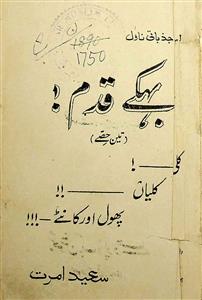 ۱۔ جذباتی ناول
1750
بہکے قدم!
(تین حصّے)
کلی ——!
کلیاں ——!!
پھول اور کانٹے —!!!
سعید امرت